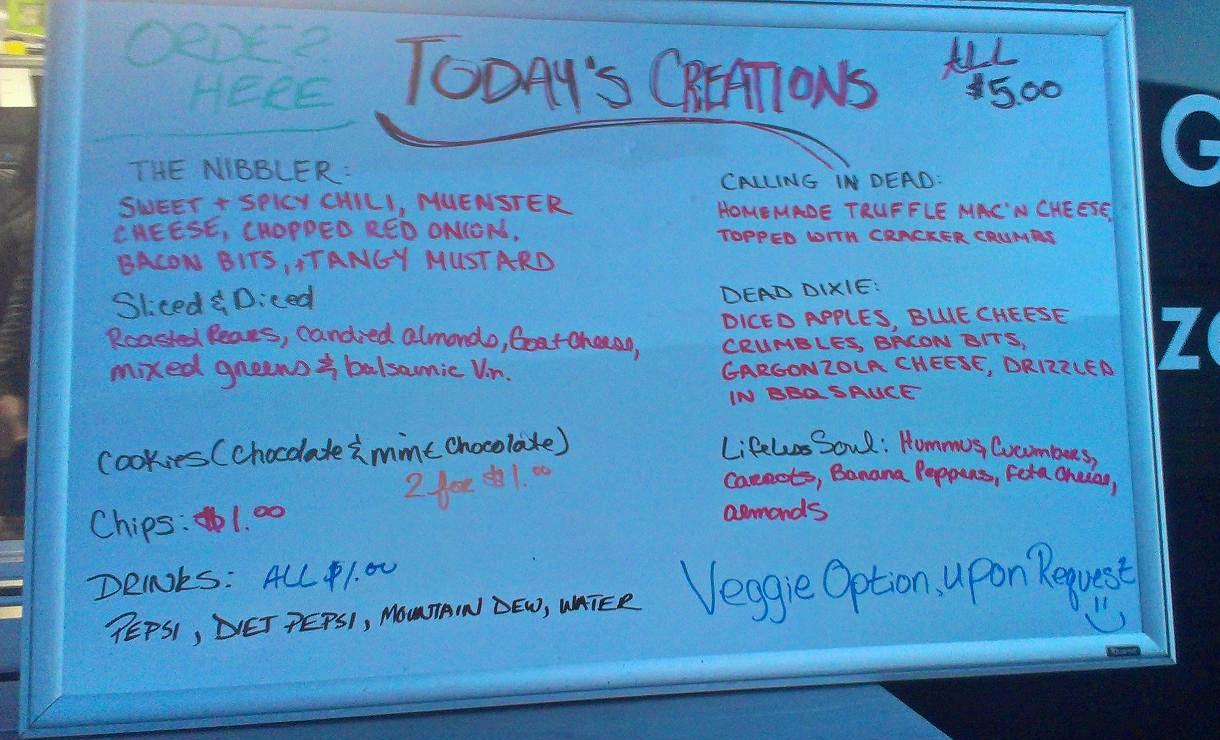 ORDER
HERE
TODAY'S CREATIONS
ALL
$5.00
THE NIBBLER:
SWEET + SPICY CHILI, MUENSTER
CHEESE, CHOPPED RED ONION,
BACON BITS, + TANGY MUSTARD
Sliced & Diced
Roasted Pears, candied almonds, Goat cheese,
mixed greens & balsamic Vin.
Cookies (chocolate & mint chocolate)
2 for $1.00
Chips: $1.00
DRINKS: ALL $1.00
PEPSI, DIET PEPSI, MOUNTAIN DEW, WATER
CALLING IN DEAD:
HOMEMADE TRUFFLE MAC'N CHEESE,
TOPPED WITH CRACKER CRUMBS
DEAD DIXIE:
DICED APPLES, BLUE CHEESE
CRUMBLES, BACON BITS,
GARGONZOLA CHEESE, DRIZZLED
IN BBQ SAUCE
Lifeless Soul: Hummus, Cucumbers,
Carrots, Banana Peppers, Feta cheese,
almonds
Veggie Option, upon Request
G
ZO